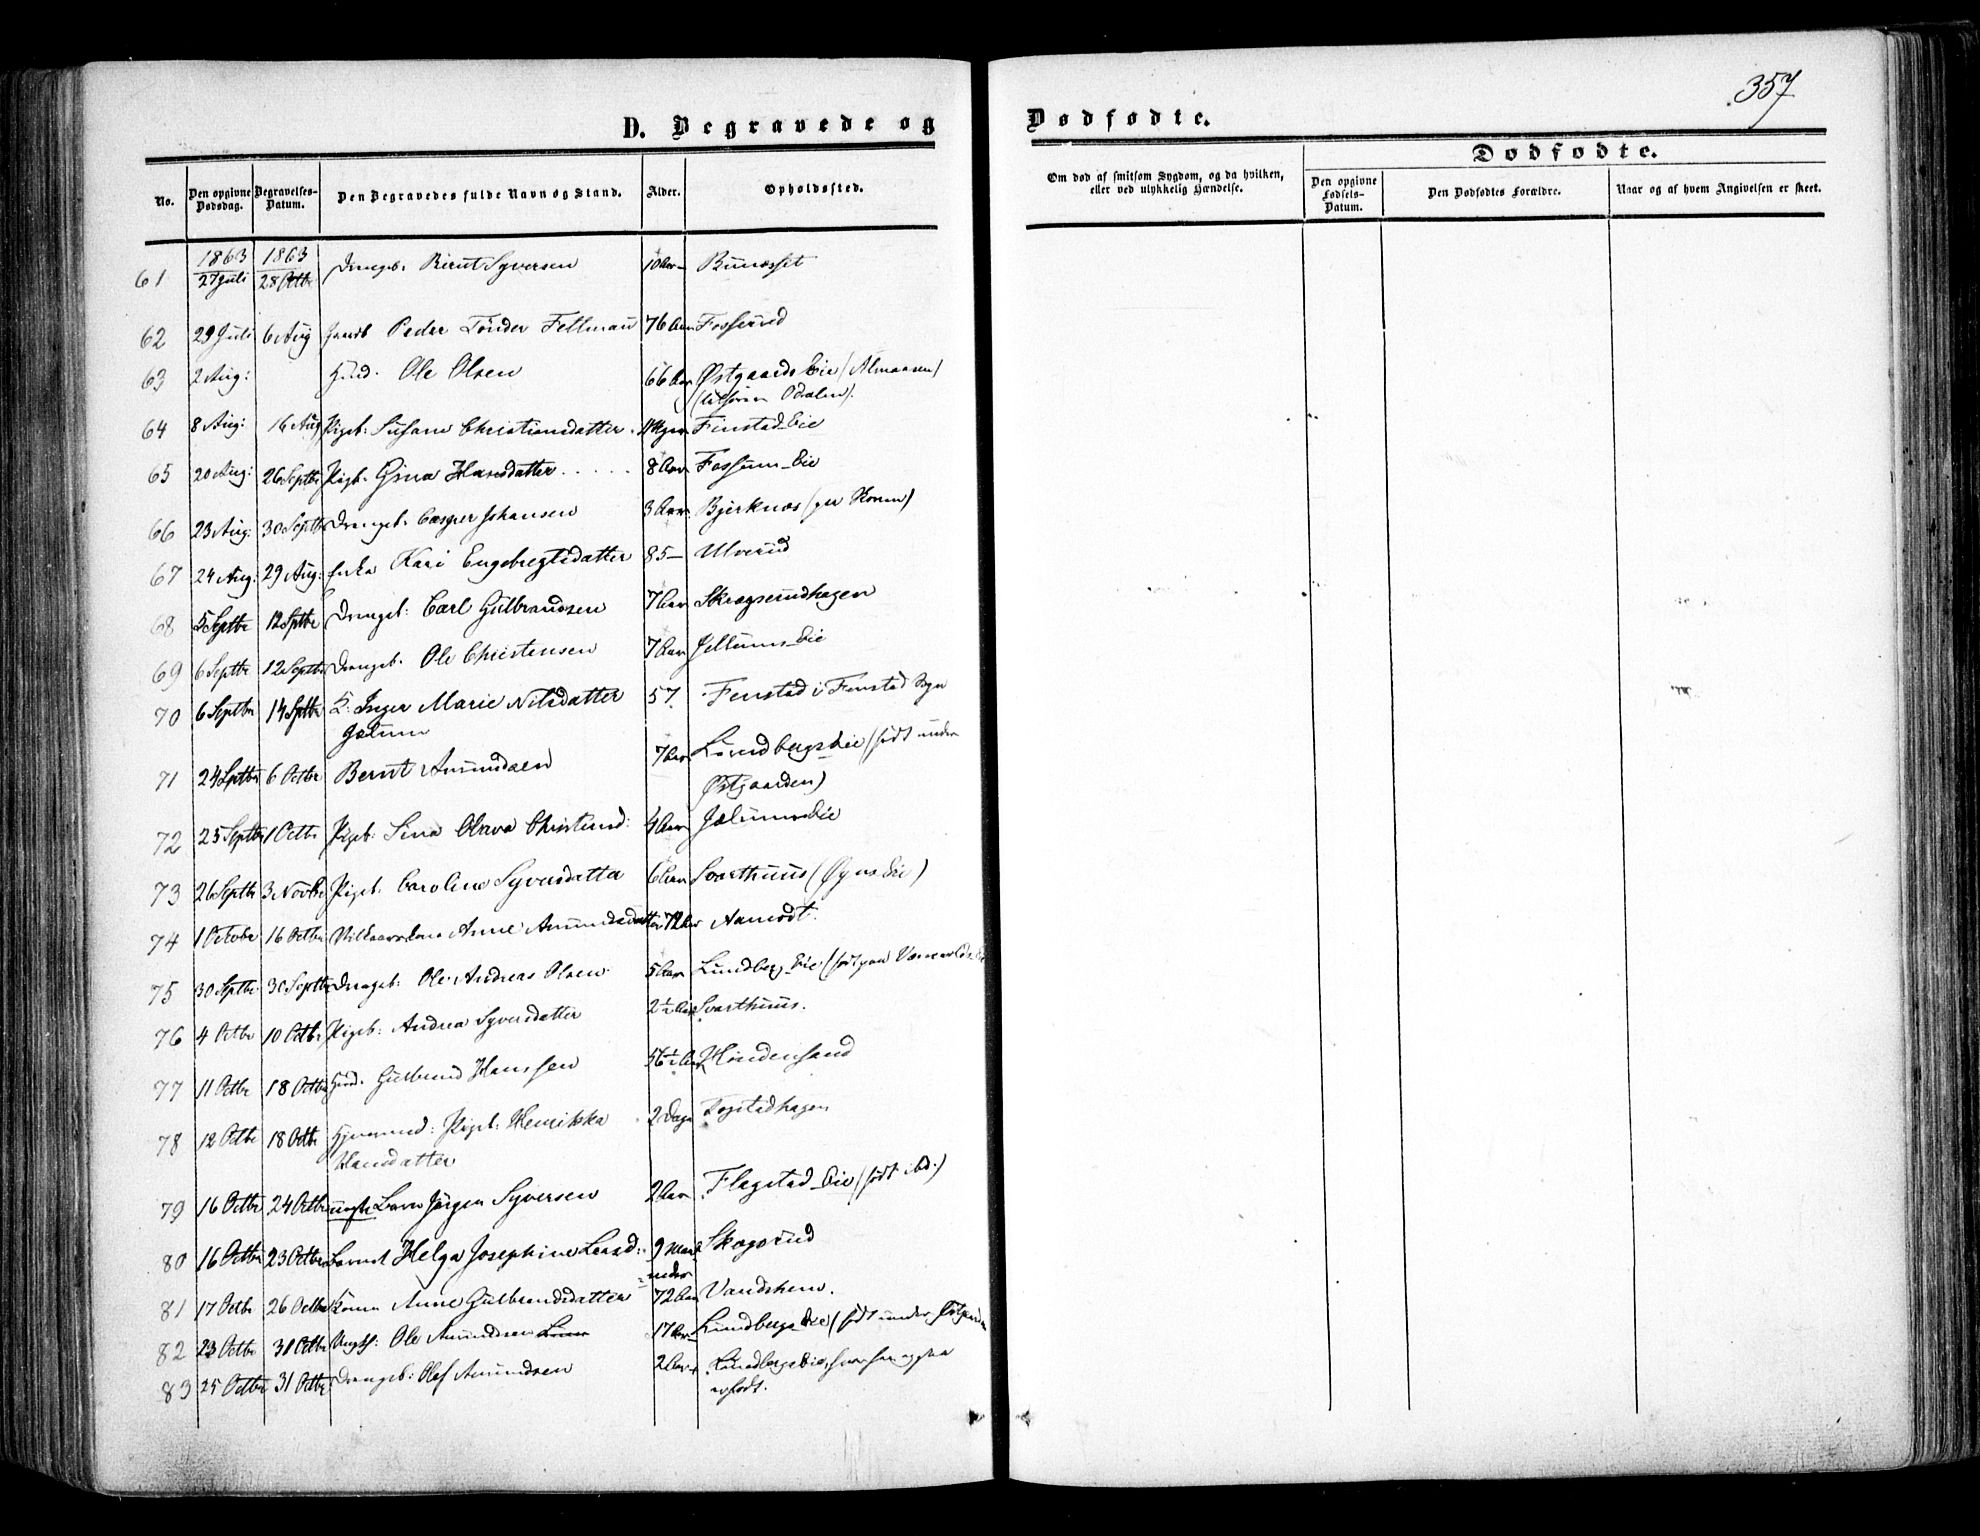 357
D. Begravede og Dødfødte.
No. Den opgivne Dødsdag. Begravelses-Datum. Den Begravedes fulde Navn og Stand. Alder. Opholdssted.
Om død af smitsom Sygdom, og da hvilken, eller ved ulykkelig Hændelse.
Dødfødte.
Den opgivne Fødsels-Datum. Den Dødfødtes Forældre. Naar og af hvem Angivelsen er skeet.
1863 1863
61 27 Juli 28 Octbr Drengeb: Bernt Syversen 10 Aar
62 29 Juli 6 Aug Peder Tønder Fellman 76 Aar Fosserud
63 2 Aug: Huusd. Ole Olsen 66 Aar Østgaards Eie (Almaasen)
64 8 Aug: 16 Aug Pigeb: Susane Christiansdatter Finstad Eie
65 20 Aug: 26 Septbr Pigeb. Gina Hansdatter 8 Aar Fossum Eie
66 23 Aug: 30 Septbr Drengeb. Casper Johansen 3 Aar Bjerknæs
67 24 Aug: 29 Aug: Enke Kari Engebregtsdatter 85 Ulverud
68 5 Septbr 12 Septbr Drengeb: Carl Gulbrandsen 7 Aar Skrægserudhagen
69 6 Septbr 12 Septbr Drengeb. Ole Christensen 7 Aar Jellums Eie
70 6 Septbr 14 Septbr K: Inger Marie Nilsdatter 57 Fenstad i Fenstad Sogn
Jælum
71 24 Septbr 6 Octbr Bernt Amundsen 7 Aar Lundbergs Eie (født under
Østgaarden)
72 25 Septbr 1 Octbr Pigeb: Sina Olava Christiansd: 4 Aar Jælums Eie
73 26 Septbr 3 Novbr Pigeb. Caroline Syversdatter 6 Aar Svarthuus (Øyns Eie)
74 1 Octobr 16 Octbr Anne Amundsdatter 72 Aar Aamodt.
75 30 Septbr 30 Septbr Drengeb: Ole Andreas Olsen 5 Aar Lundberg Eie (født paa
76 4 Octbr 10 Octbr Pigeb: Andrea Syversdatter 2½ Aar Svarthuus.
77 11 Octbr 18 Octbr Huusd. Gulbrand Hanssen 56½ Aar
78 12 Octbr 18 Octbr Hjemmed: Pigeb: Henrikka 2 Dage Fogstadhagen
Hansdatter
79 16 Octbr 24 Octbr uægte Barn Jørgen Syversen 2 Aar Flagstad Eie (født ibd.)
80 16 Octbr 23 Octbr Barnet Helga Josephine Larsd: 9 Maa- Skøgsrud
neder
81 17 Octbr 26 Octbr Konen Anne Gulbrandsdatter 72 Aar Vandshem.
82 23 Octbr 31 Octbr Ungk: Ole Amundsen 17 Aar Lundbergs Eie (født under Østgaarden
83 25 Octbr 31 Octbr Drengeb: Olaf Amundsen 2 Aar Lundbergs Eie, hvor han ogsaa
er født.